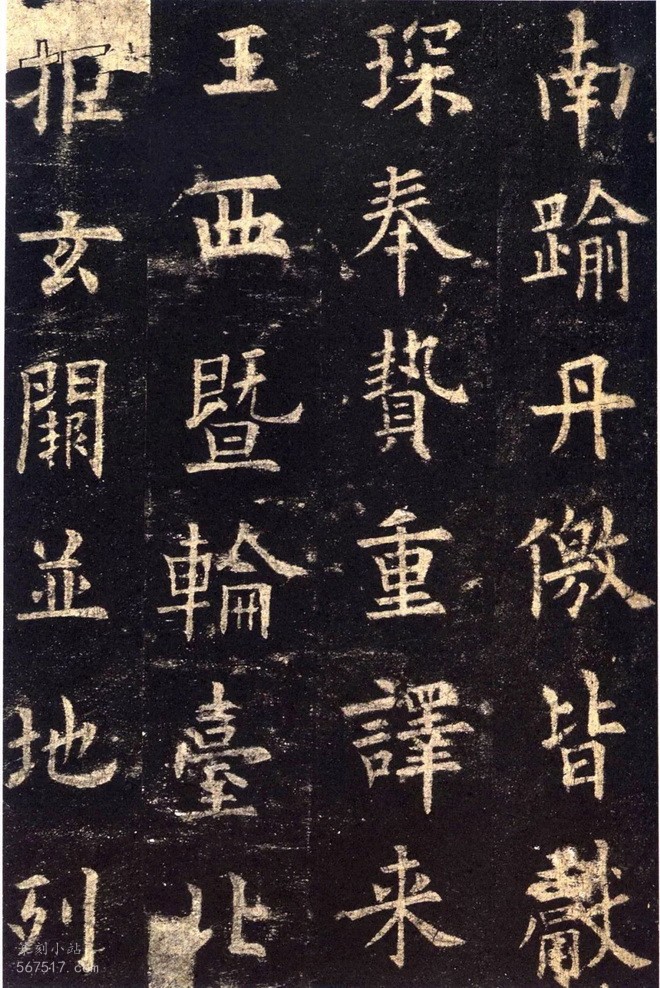 南踰丹儌皆獻
琛奉贄重譯来
王西暨輪臺北
拒玄闕並地列
篆刻小站
567517.com